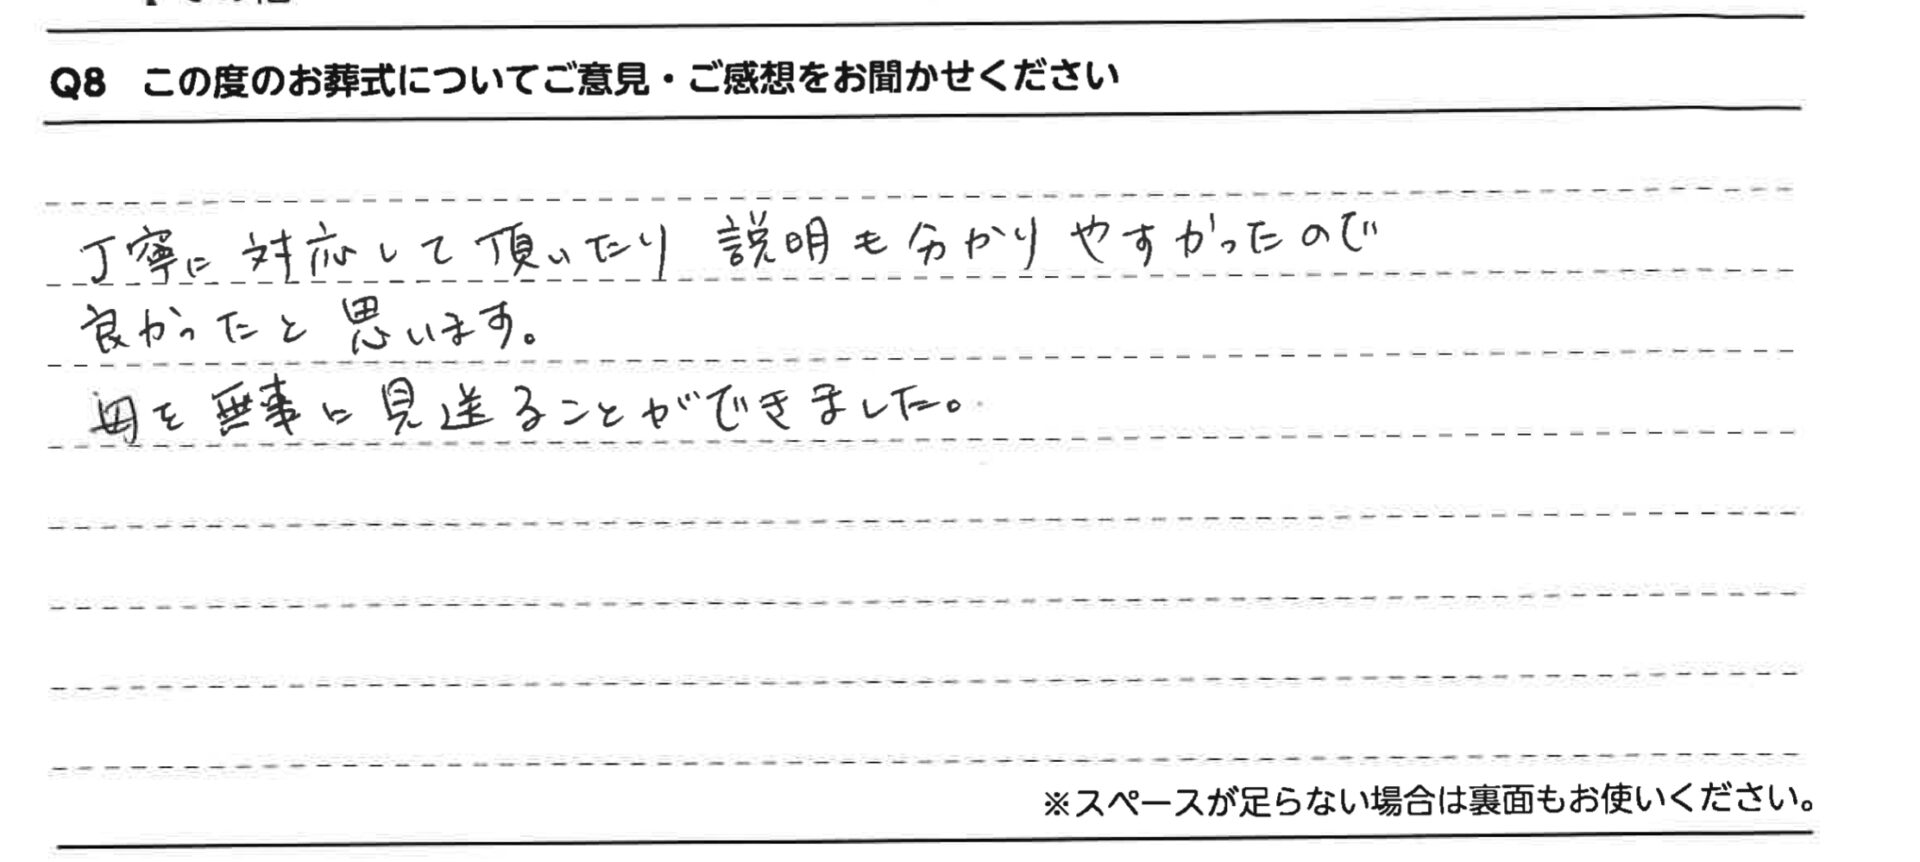 Q8 この度のお葬式についてご意見・ご感想をお聞かせください
丁寧に対応して頂いたり 説明も分かりやすかったので
良かったと思います。
母を無事に見送ることができました。
※スペースが足らない場合は裏面もお使いください。